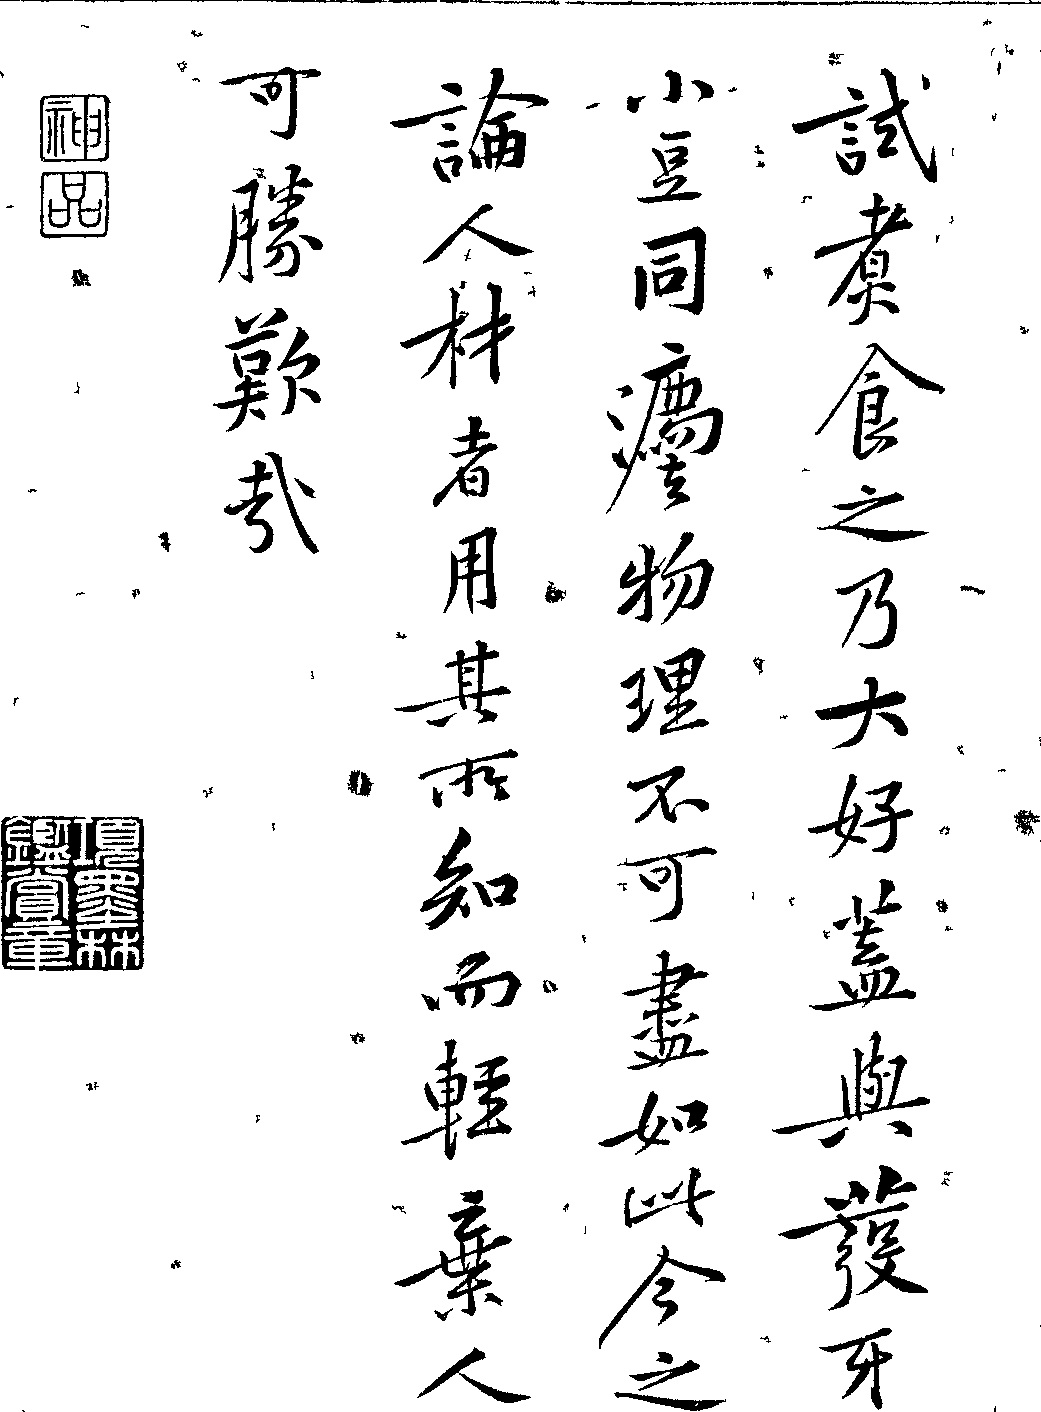 試煑食之乃大好蓋與發牙
小豆同灋物理不可盡如此今之
論人材者用其所知而輕棄人
可勝歎哉
神品
項墨林鑑賞章